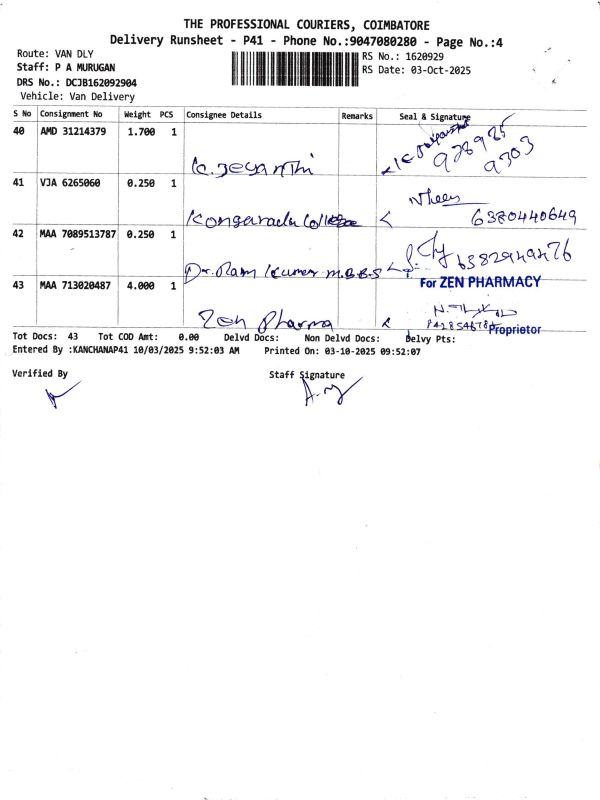 THE PROFESSIONAL COURIERS, COIMBATORE
Delivery Runsheet - P41 - Phone No.:9047080280 - Page No.:4
Route: VAN DLY
RS No.: 1620929
Staff: P A MURUGAN
RS Date: 03-Oct-2025
DRS No.: DCJB162092904
Vehicle: Van Delivery
S No Consignment No Weight PCS Consignee Details Remarks Seal & Signature
40 AMD 31214379 1.700 1
K. Jeyanthi 928925 9303
41 VJA 6265060 0.250 1
6380440649
42 MAA 7089513787 0.250 1
Dr. Ram Kumar M.B.B.S 6382949476
43 MAA 713020487 4.000 1
For ZEN PHARMACY
Zen Pharma
Proprietor
Tot Docs: 43 Tot COD Amt: 0.00 Delvd Docs: Non Delvd Docs: Delvy Pts:
Entered By :KANCHANAP41 10/03/2025 9:52:03 AM Printed On: 03-10-2025 09:52:07
Verified By Staff Signature